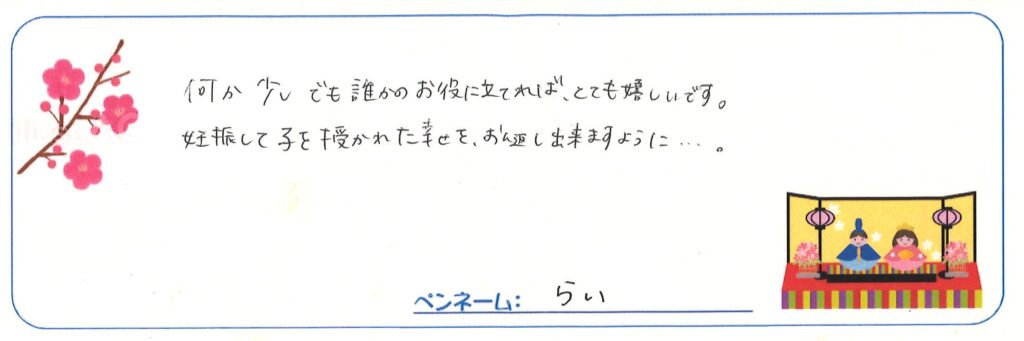 何か少しでも誰かのお役に立てれば、とても嬉しいです。
妊振して子を授かれた幸せを、お返し出来ますように…。
ペンネーム： らい